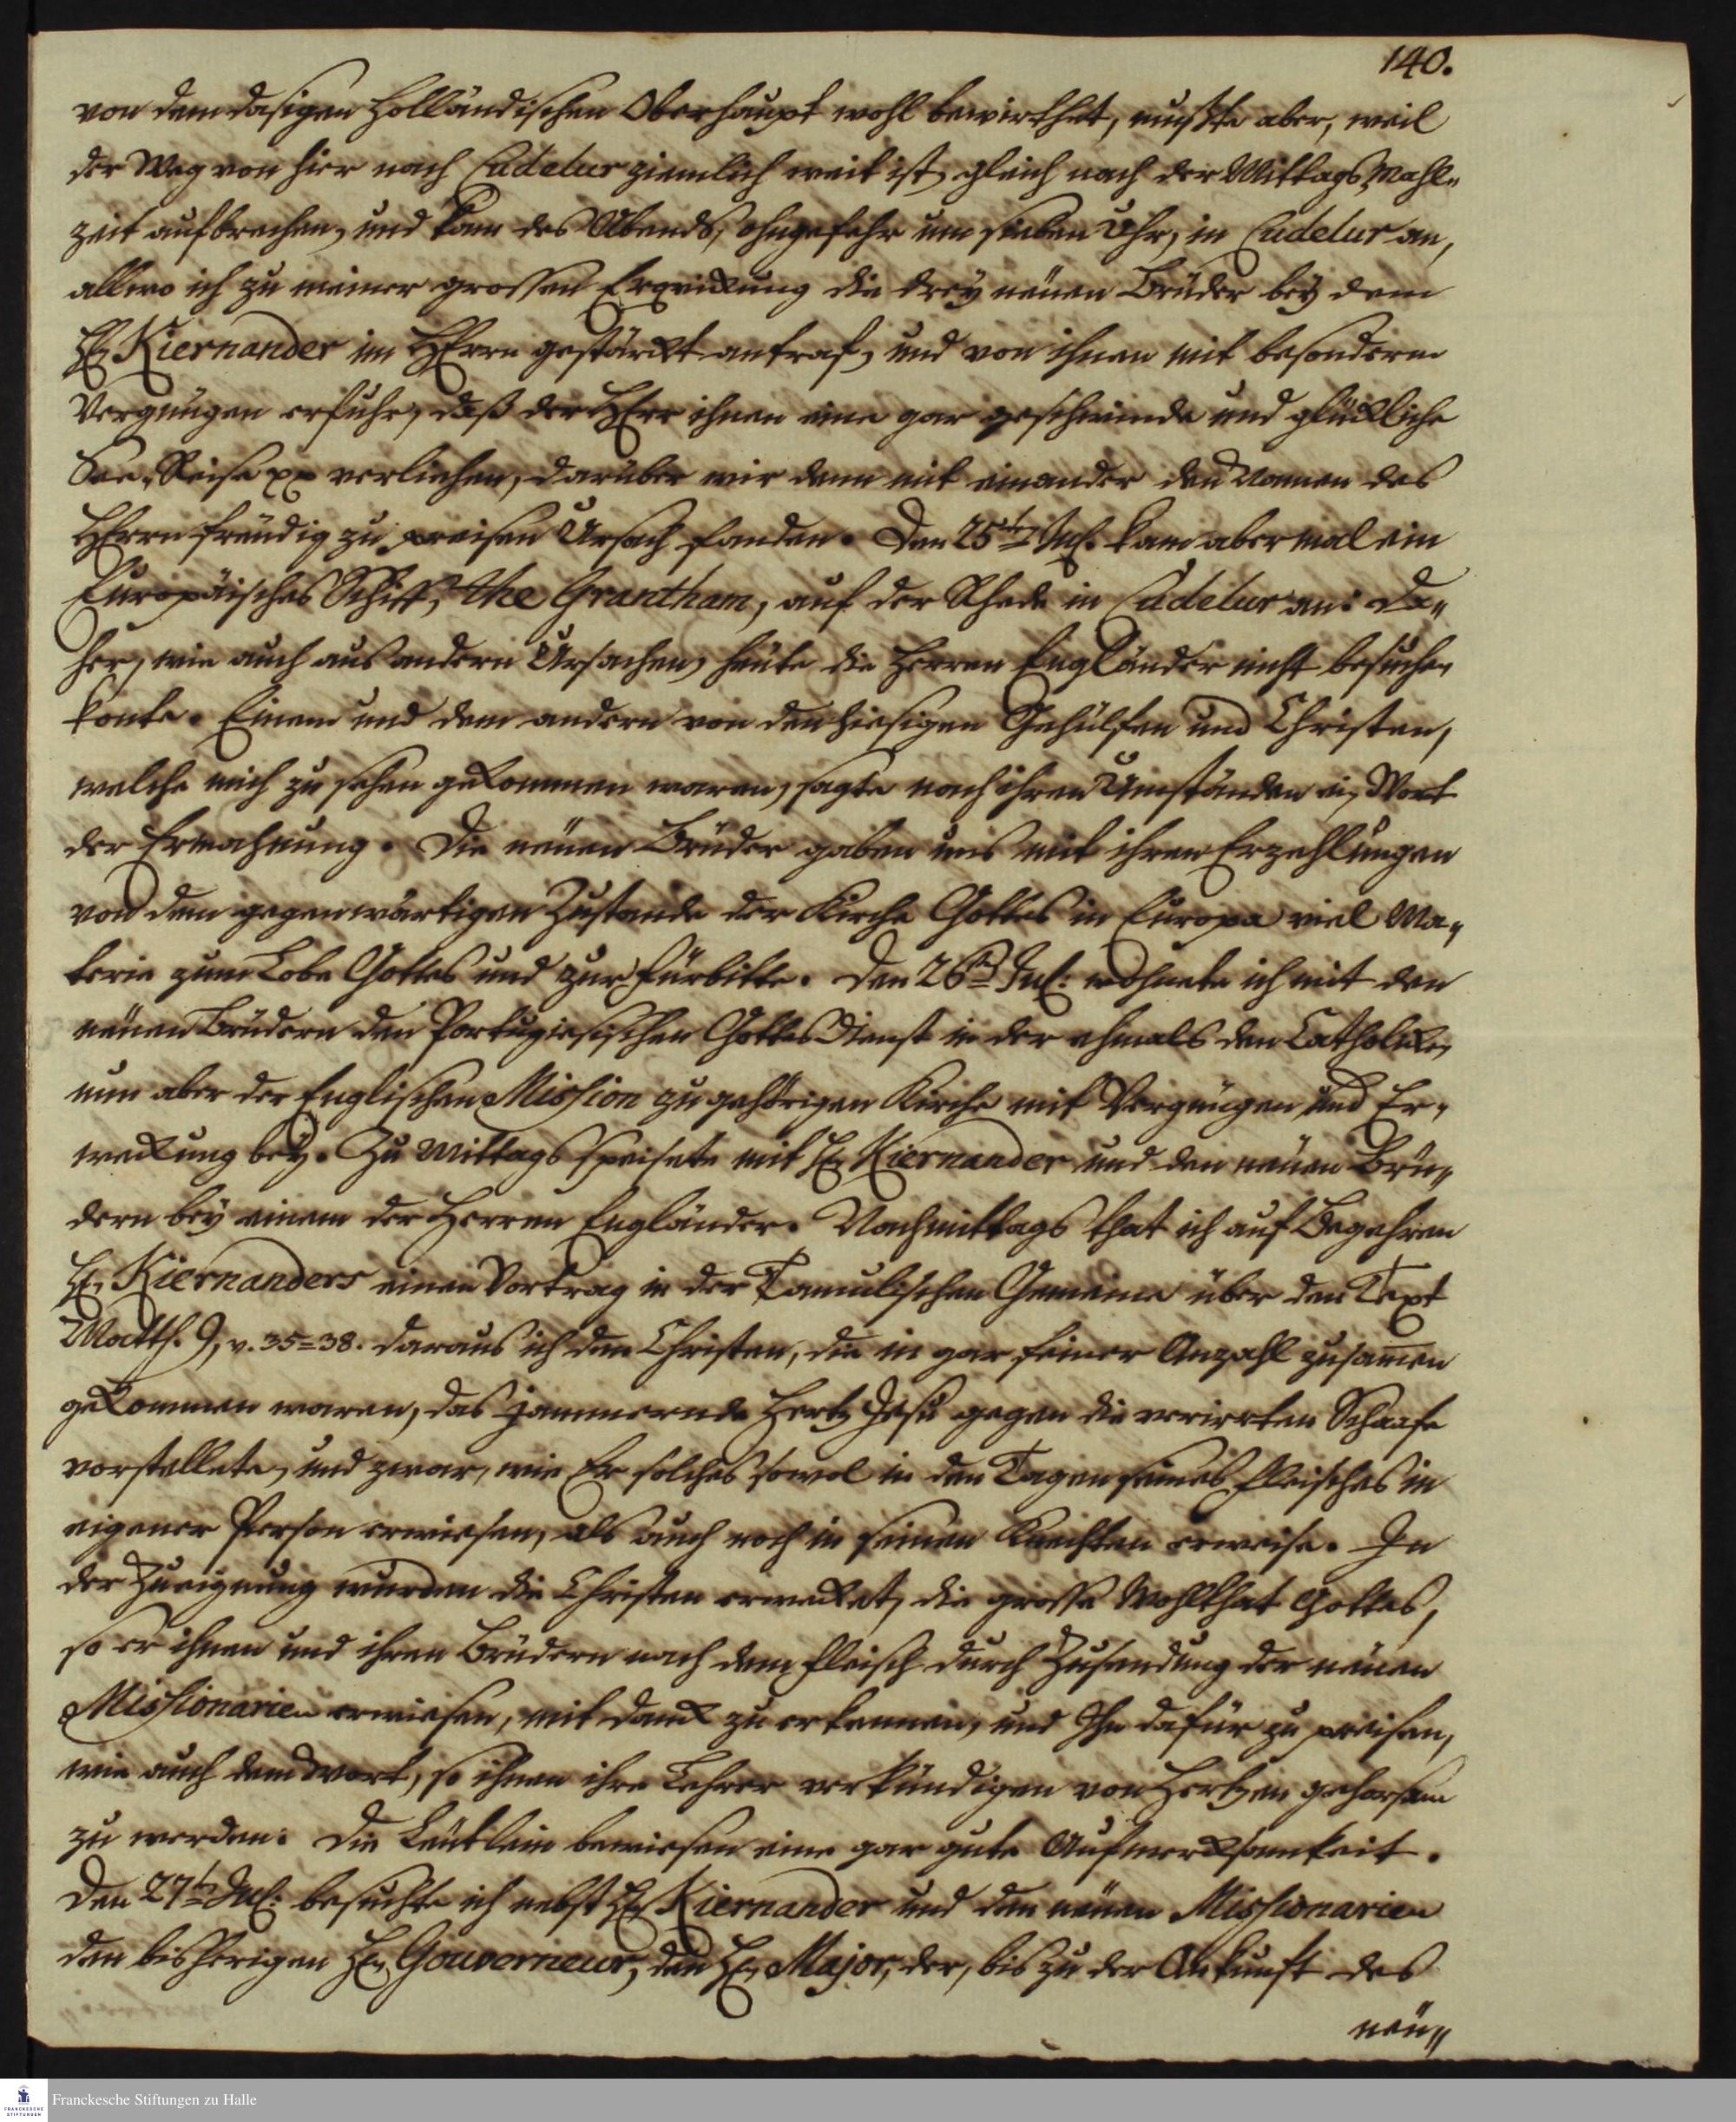 140.
von dem dasigen Holländischen Oberhaupt wohl bewirthet, mußte aber, weil
der Weg von hier nach Cudelur ziemlich weit ist, gleich nach der Mittags Mahl„
zeit aufbrechen, und kam des Abends, ohngefehr um sieben Uhr, in Cudelur an,
allwo ich zu meiner grossen Erqvickung die drey neuen Brüder bey dem
Hn Kiernander im HErrn gestärckt antraf, und von ihnen mit besonderm
Vergnügen erfuhr, daß der HErr ihnen eine gar geschwinde und glückliche
See-Reise verliehen, darüber wir denn mit einander den Namen des
HErrn freudig zu preisen Ursach fanden. Den 25ten Jul. kam abermal ein
Europäisches Schiff, the Grantham, auf der Rhede in Cudelur an: da„
her, wie auch aus andern Ursachen, heute die Herren Engländer nicht besuchen
konte. Einem und dem andern von den hiesigen Gehülfen und Christen,
welche mich zu sehen gekommen waren, sagte nach ihren Umständen ein Wort
der Ermahnung. Die neuen Brüder gaben uns mit ihren Erzehlungen
von dem gegenwärtigen Zustande der Kirche Gottes in Europa viel Ma„
terie zum Lobe Gottes und zur Fürbitte. Den 26ten Jul: wohnete ich mit den
neuen Brüdern den Portugiesischen Gottesdienst in der ehmals den Catholicken
nun aber der Englischen Mission zugehörigen Kirche mit Vergnügen und Er„
weckung bey. Zu Mittags speisete mit Hn Kiernander und den neuen Brü„
dern bey einem der Herren Engländer. Nachmittags that ich auf Begehren
Hn Kiernanders einen Vortrag in der Tamulischen Gemeine über den Text
Matth. 9, v. 35=38. daraus ich den Christen, die in gar feiner Anzahl zusamen
gekommen waren, das jammernde Hertz Jesu gegen die verirrten Schaafe
vorstellete, und zwar, wie Er solches sowol in den Tagen seines Fleisches in
eigener Person erwiesen, als auch noch in seinen Knechten erweise. In
der Zueignung wurden die Christen erwecket, die grosse Wohlthat Gottes,
so er ihnen und ihren Brüdern nach dem Fleisch durch Zusendung der neuen
Missionarien erwiesen, mit Danck zu erkennen, und Ihn dafür zu preisen,
wie auch dem Wort, so ihnen ihre Lehrer verkündigen von Hertzen gehorsam
zu werden. Die Leutlein bewiesen eine gar gute Aufmercksamkeit.
Den 27ten Jul: besuchte ich nebst Hn Kiernander und den neuen Missionarien
den bisherigen Hn Gouverneur, den Hn Major, der, bis zu der Ankunft des
neu„
Franckesche Stiftungen zu Halle
FRANCKESCHE
STIFTUNGEN